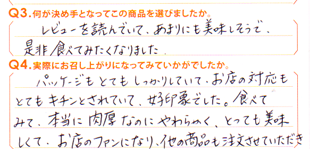 Q3.何が決め手となってこの商品を選びましたか。
レビューを読んでいて、あまりにも美味しそうで、
是非食べてみたくなりました
Q4.実際にお召し上がりになってみていかがでしたか。
パッケージもとてもしっかりしていて、お店の対応も
とてもキチンとされていて、好印象でした。食べて
みて、本当に肉厚なのにやわらかく、とっても美味
しくて、お店のファンになり、他の商品も注文させていただき